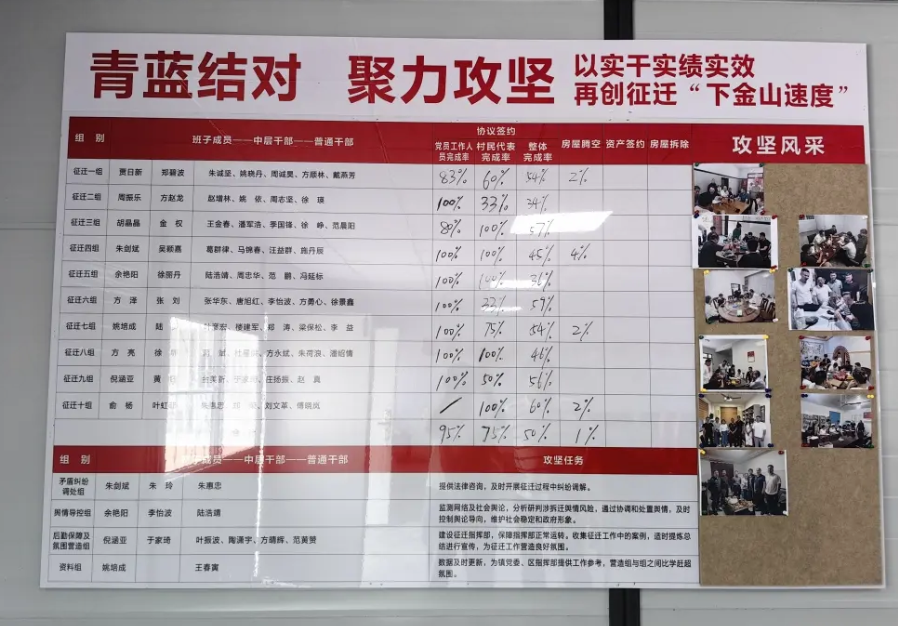 青蓝结对 聚力攻坚
以实干实绩实效
再创征迁“下金山速度”
组 别 班子成员——中层干部——普通干部 协议签约 房屋腾空 资产签约 房屋拆除 攻坚风采
党员工作人员完成率 村民代表完成率 整体完成率
征迁一组 贾日新 郑碧波 朱诚坚、姚晓丹、周诚昊、方顺林、戴燕芳 83% 60% 54% 2%
征迁二组 周振乐 方赵龙 赵增林、姚 依、周志坚、徐 瑛 100% 33% 34%
征迁三组 胡晶晶 金 权 王金春、潘军浩、季国锋、徐 峥、范晨阳 80% 100% 57%
征迁四组 朱剑斌 吴颖嘉 葛群律、马锦春、汪益群、施丹辰 100% 100% 45% 4%
征迁五组 余艳阳 徐丽丹 陆浩靖、周忠华、范 鹏、冯延标 100% 100% 36%
征迁六组 方 泽 张 刘 张华东、唐旭红、李怡波、方勇心、徐景鑫 100% 33% 59%
征迁七组 姚培成 陆 楼建军、郑 涛、梁保松、李 益 100% 75% 54% 2%
征迁八组 方 亮 徐 方永斌、朱荷浪、潘昭情 100% 100% 46%
征迁九组 倪涵亚 黄 庄扬振、赵 真 100% 50% 56%
征迁十组 俞 杨 叶虹 刘文革、傅晓岚 / 100% 60% 2%
95% 75% 50% 1%
组 别 成员——中层干部——普通干部 攻坚任务
矛盾纠纷调处组 朱剑斌 朱 玲 朱惠忠 提供法律咨询，及时开展征迁过程中纠纷调解。
舆情导控组 余艳阳 李怡波 陆浩靖 监测网络及社会舆论，分析研判涉拆迁舆情风险，通过协调和处置舆情，及时
控制舆论导向，维护社会稳定和政府形象。
后勤保障及氛围营造组 倪涵亚 于家琦 叶振波、陶潇宇、方晴辉、范黄赞 建设征迁指挥部，保障指挥部正常运转。收集征迁工作中的案例，适时提炼总
结进行宣传，为征迁工作营造良好氛围。
资料组 姚培成 王春寅 数据及时更新，为镇党委、区指挥部提供工作参考，营造组与组之间比学赶超
氛围。